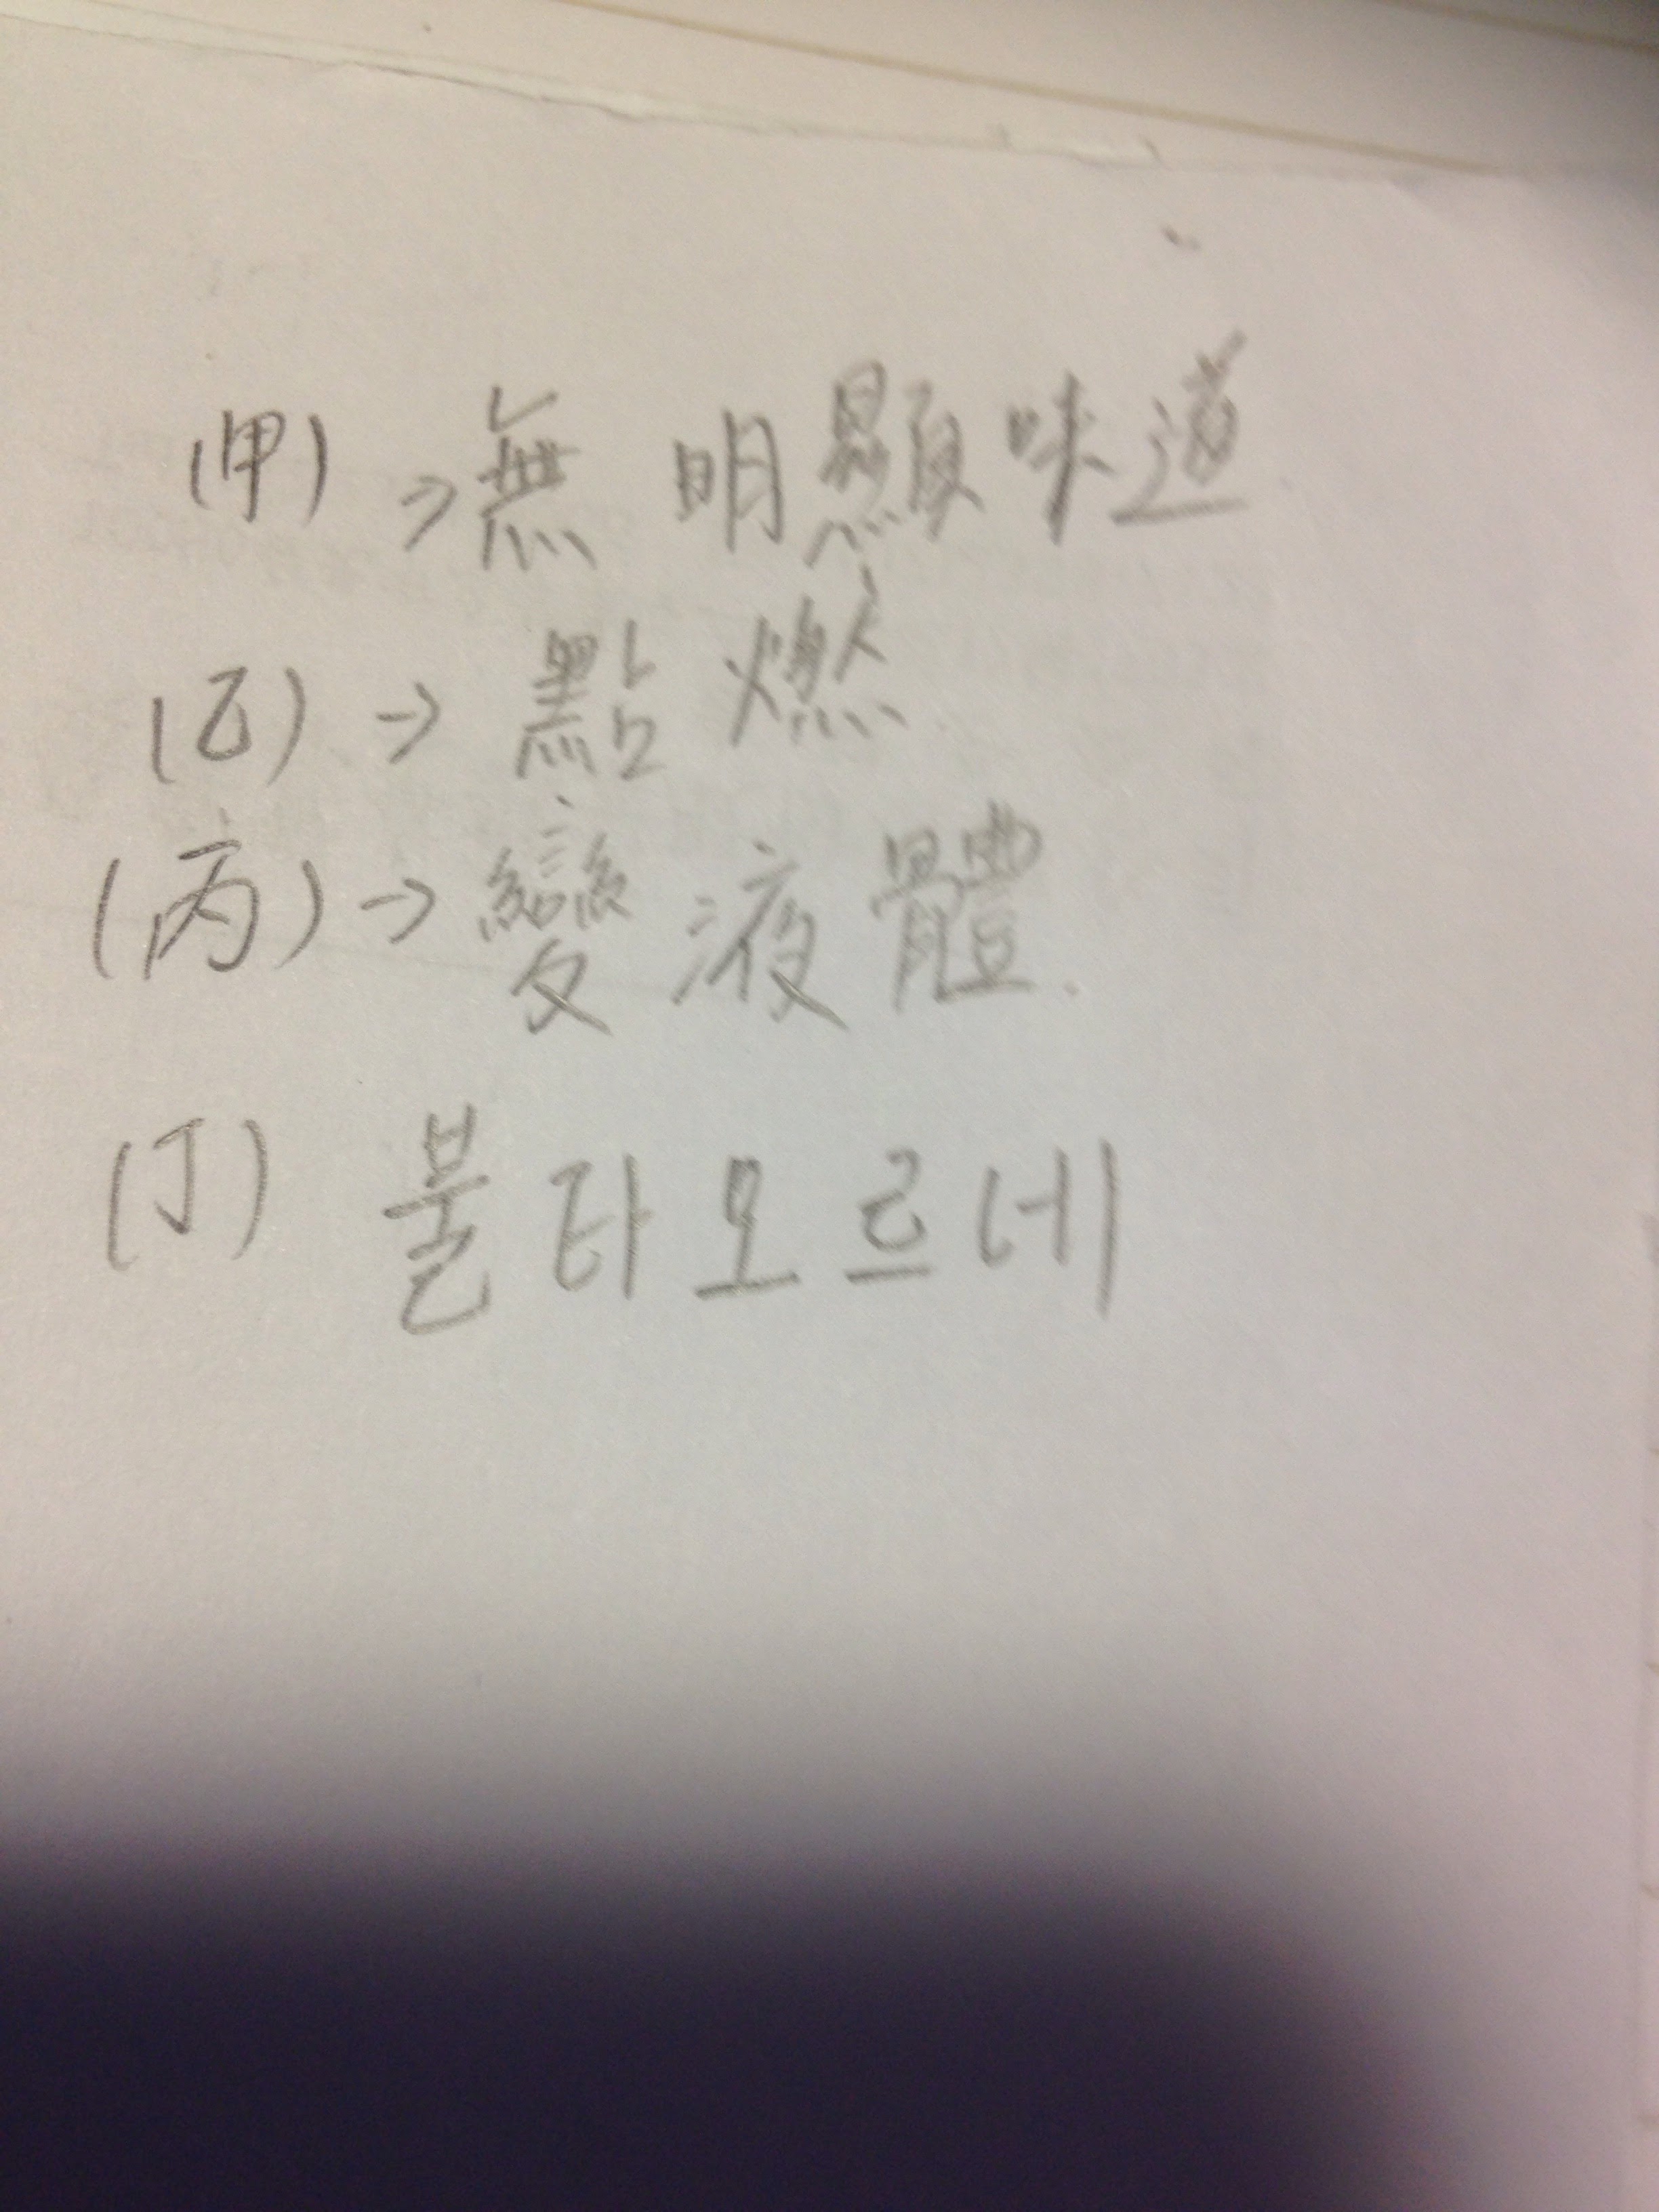 (甲)→無明顯味道
(乙)→點燃
(丙)→變液體.
(丁) 불타오르네